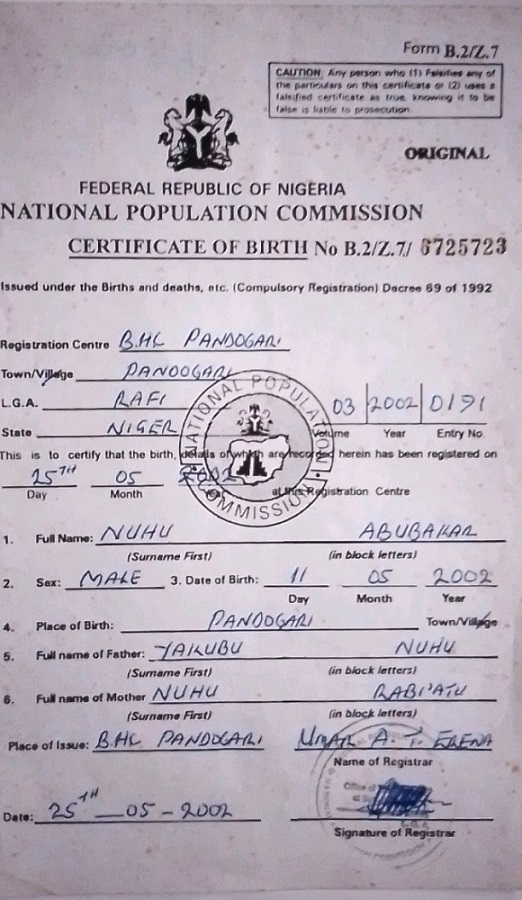 Form B.2/Z.7
CAUTION: Any person who (1) Falsifies any of
the particulars on this certificate or (2) uses a
falsified certificate as true, knowing it to be
false is liable to prosecution
ORIGINAL
FEDERAL REPUBLIC OF NIGERIA
NATIONAL POPULATION COMMISSION
CERTIFICATE OF BIRTH No B.2/Z.7/ 6725723
Issued under the Births and deaths, etc. (Compulsory Registration) Decree 69 of 1992
Registration Centre B.HC PANDOGARI
Town/Village PANDOGARI
L.G.A. RAFI
03 2002 0191
State NIGER
Volume Year Entry No
NATIONAL POPULATION COMMISSION
This is to certify that the birth, details of which are recorded herein has been registered on
25TH 05 2002
Day Month Year at this Registration Centre
1. Full Name: NUHU ABUBAKAR
(Surname First) (in block letters)
2. Sex: MALE 3. Date of Birth: 11 05 2002
Day Month Year
4. Place of Birth: PANDOGARI Town/Village
5. Full name of Father: YAKUBU NUHU
(Surname First) (in block letters)
6. Full name of Mother NUHU RABI'ATU
(Surname First) (in block letters)
Place of Issue: B.HC PANDOGARI UMAR A. T. ERENA
Name of Registrar
Date: 25TH - 05 - 2002
Signature of Registrar